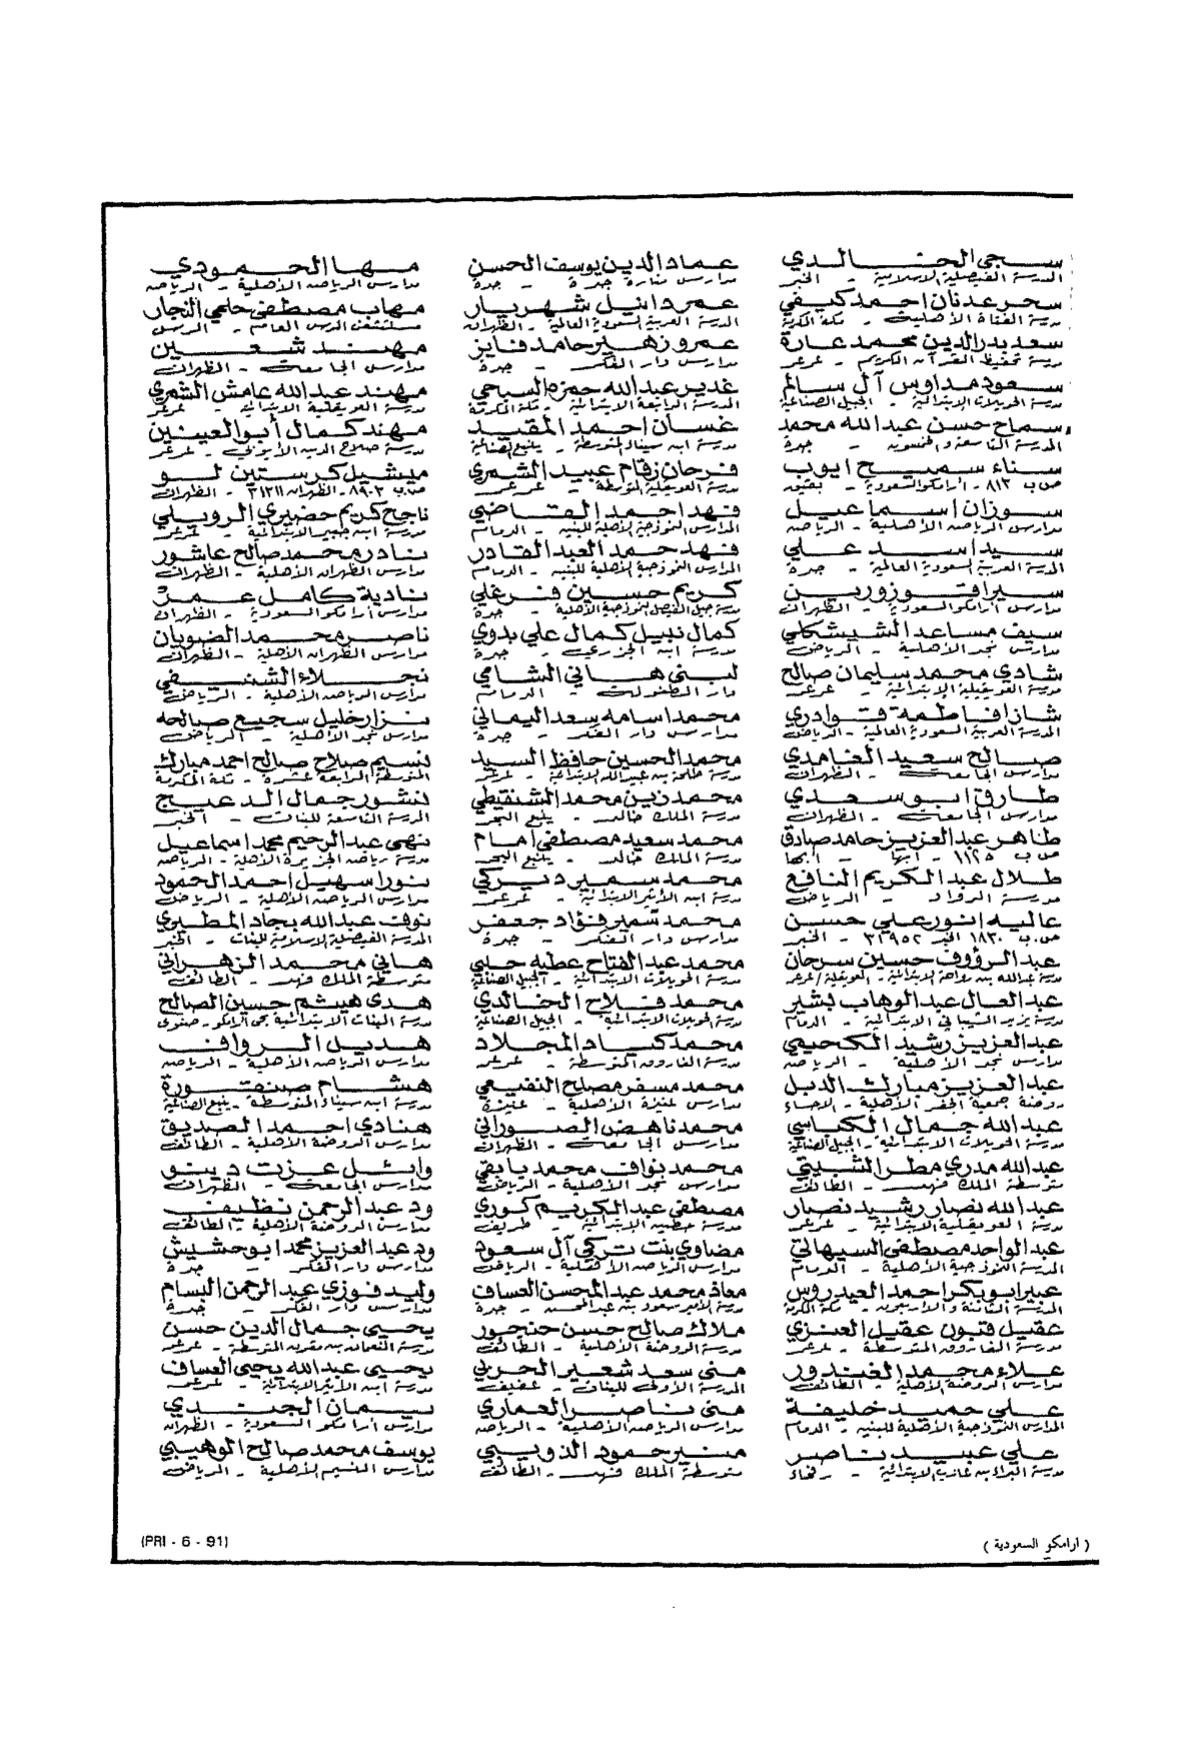 سجى الخالدي
المدرسة الفيصلية الاسلامية - الخبر
سحر عدنان احمد كيفي
مدرسة الفتاة الأهلية - مكة المكرمة
سعد بدر الدين محمد عمارة
مدرسة تحفيظ القرآن الكريم - عرعر
سعود مداوس آل سالم
مدرسة الحويلات الابتدائية - الجبيل الصناعية
سماح حسن عبد الله محمد
المدرسة التاسعة والخمسون - جدة
سناء سميح ايوب
ص.ب ٨١٣ - أرامكو السعودية - بقيق
سوزان اسماعيل
مدارس الرياض الأهلية - الرياض
سيد اسد علي
المدرسة العربية السعودية العالمية - جدة
سيرا فتوزوربين
مدارس أرامكو السعودية - الظهران
سيف مساعد الشيشكلي
مدارس نجد الأهلية - الرياض
شادي محمد سليمان صالح
مدرسة العويقيلية الابتدائية - عرعر
شازا فاطمة قوادري
المدرسة العربية السعودية العالمية - الرياض
صالح سعيد الغامدي
مدارس الجامعة - الظهران
طارق ابو سعدي
مدارس الجامعة - الظهران
طاهر عبد العزيز حامد صادق
ص.ب ١١٢٥ - أبها - أبها
طلال عبد الكريم النافع
مدرسة الرواد - الرياض
عاليه انور علي حسن
ص.ب ١٨٣٠ الخبر ٣١٩٥٢ - الخبر
عبد الرؤوف حسين سرحان
مدرسة عبد الله بن رواحة الابتدائية - العويقلية / عرعر
عبد العال عبد الوهاب بشير
مدرسة يزيد الشيباني الابتدائية - الدمام
عبد العزيز رشيد الكحيمي
مدارس نجد الأهلية - الرياض
عبد العزيز مبارك الدبل
روضة جمعية الجفر الأهلية - الاحساء
عبد الله جمال الكباسي
مدرسة الحويلات الابتدائية - الجبيل الصناعية
عبد الله مدري مطر الشبيتي
متوسطة الملك فهد - الطائف
عبد الله نصار رشيد نصار
مدرسة العويقلية الابتدائية - عرعر
عبد الواحد مصطفى السيهاتي
المدرسة النموذجية الأهلية - الدمام
عبير ابو بكر احمد العيدروس
المدرسة الثامنة والاربعون - مكة المكرمة
عقيل فتبون عقيل العنزي
مدرسة الفاروق المتوسطة - عرعر
علاء محمد الغندور
مدارس الروضة الأهلية - الطائف
علي حميد خليفة
المدارس النموذجية الأهلية للبنين - الدمام
علي عبيد ناصر
مدرسة البراء بن عازب الابتدائية - رفحاء
عماد الدين يوسف الحسن
مدارس منارة جدة - جدة
عمر دانيل شهريار
المدرسة العربية السعودية العالمية - الظهران
عمرو زهير حامد فايز
مدارس دار الفكر - جدة
غدير عبد الله حمزه السبحي
المدرسة الرابعة الابتدائية - مكة المكرمة
غسان احمد المقيد
مدرسة ابن سينا المتوسطة - ينبع الصناعية
فرحان زقام عبيد الشمري
مدرسة العويقلية المتوسطة - عرعر
فهد احمد القاضي
المدارس النموذجية الأهلية للبنين - الدمام
فهد حمد العبد القادر
المدارس النموذجية الأهلية للبنين - الدمام
كريم حسين فرغلي
مدرسة جيل الفيصل النموذجية الأهلية - جدة
كمال نبيل كمال علي بدوي
مدرسة ابن الجزري - جدة
لبنى هاني الشامي
دار الطفولة - الدمام
محمد اسامه سعد اليماني
مدارس دار الفكر - جدة
محمد الحسين حافظ السيد
مدرسة طلحة بن عبيد الله الابتدائية - عرعر
محمد زين محمد الشنقيطي
مدرسة الملك خالد - ينبع البحر
محمد سعيد مصطفى امام
مدرسة الملك خالد - ينبع البحر
محمد سمير دنيركي
مدرسة ابن الأثير الابتدائية - عرعر
محمد سمير فؤاد جعفر
مدارس دار الفكر - جدة
محمد عبد الفتاح عطيه حبي
مدرسة الحويلات الابتدائية - الجبيل الصناعية
محمد فلاح الخالدي
مدرسة الحويلات الابتدائية - الجبيل الصناعية
محمد كباد المجلاد
مدرسة الفاروق المتوسطة - عرعر
محمد مسفر مصلح النفيعي
مدارس عنيزة الأهلية - عنيزة
محمد ناهض الصوراني
مدارس الجامعة - الظهران
محمد نواف محمد يا بقي
مدارس نجد الأهلية - الرياض
مصطفى عبد الكريم كوري
مدرسة حطين الابتدائية - طريف
مضاوي بنت تركي آل سعود
مدارس الرياض الأهلية - الرياض
معاذ محمد عبد المحسن العساف
مدرسة الأمير سعود بن عبد المحسن - جدة
ملاك صالح حسن حنجور
مدرسة الروضة الأهلية - الطائف
منى سعد شعير الحربي
المدرسة الأولى للبنات - عفيف
منى ناصر العماري
مدارس الرياض الأهلية - الرياض
منير حمود الذويبي
متوسطة الملك فهد - الطائف
مها الحمودي
مدارس الرياض الأهلية - الرياض
مهاب مصطفى حلمي النجار
مستشفى الرس العام - الرس
مهند شعبين
مدارس الجامعة - الظهران
مهند عبد الله عامش الشمري
مدرسة العويقلية الابتدائية - عرعر
مهند كمال أبو العينين
مدرسة صلاح الدين الأيوبي - عرعر
ميشيل كرستين لو
ص.ب ٨٩٠٢ - الظهران ٣١٣١١ - الظهران
ناجح كريم خضيري الرويلي
مدرسة ابن جبير الابتدائية - عرعر
نادر محمد صالح عاشور
مدارس الظهران الأهلية - الظهران
نادية كامل عمر
مدارس أرامكو السعودية - الظهران
ناصر محمد الضويان
مدارس الظهران الأهلية - الظهران
نجلاء الشنيفي
مدارس الرياض الأهلية - الرياض
نزار خليل سجيع صالحه
مدارس نجد الأهلية - الرياض
نسيم صلاح صالح احمد مبارك
المتوسطة الرابعة عشرة - مكة المكرمة
نشور جمال الدعيج
المدرسة التاسعة للبنات - الخبر
نهى عبد الرحيم محمد اسماعيل
مدرسة رياض الجزيرة الأهلية - الرياض
نورا سهيل احمد الحمود
مدارس الرياض الأهلية - الرياض
نوف عبد الله بجاد المطيري
المدرسة الفيصلية الاسلامية للبنات - الخبر
هاني محمد الزهراني
متوسطة الملك فهد - الطائف
هدى هيثم حسين الصالح
مدرسة البنات الابتدائية بحي أرامكو - صفوى
هديل الرواف
مدارس الرياض الأهلية - الرياض
هشام صنقورة
مدرسة ابن سيناء المتوسطة - ينبع الصناعية
هنادي احمد الصديق
مدارس الروضة الأهلية - الطائف
وائل عزت دينو
مدارس الجامعة - الظهران
ود عبد الرحمن نظيف
مدارس الروضة الأهلية - الطائف
ود عبد العزيز محمد ابو حشيش
مدارس دار الفكر - جدة
وليد فوزي عبد الرحمن البسام
مدارس دار الفكر - جدة
يحيى جمال الدين حسن
مدرسة النعمان بن مقرن المتوسطة - عرعر
يحيى عبد الله يحيى العساف
مدرسة ابن الأثير الابتدائية - عرعر
يمان الجندي
مدارس أرامكو السعودية - الظهران
يوسف محمد صالح الوهيبي
مدارس القسيم الأهلية - الرياض
( ارامكو السعودية )
(PRI - 6 - 91)